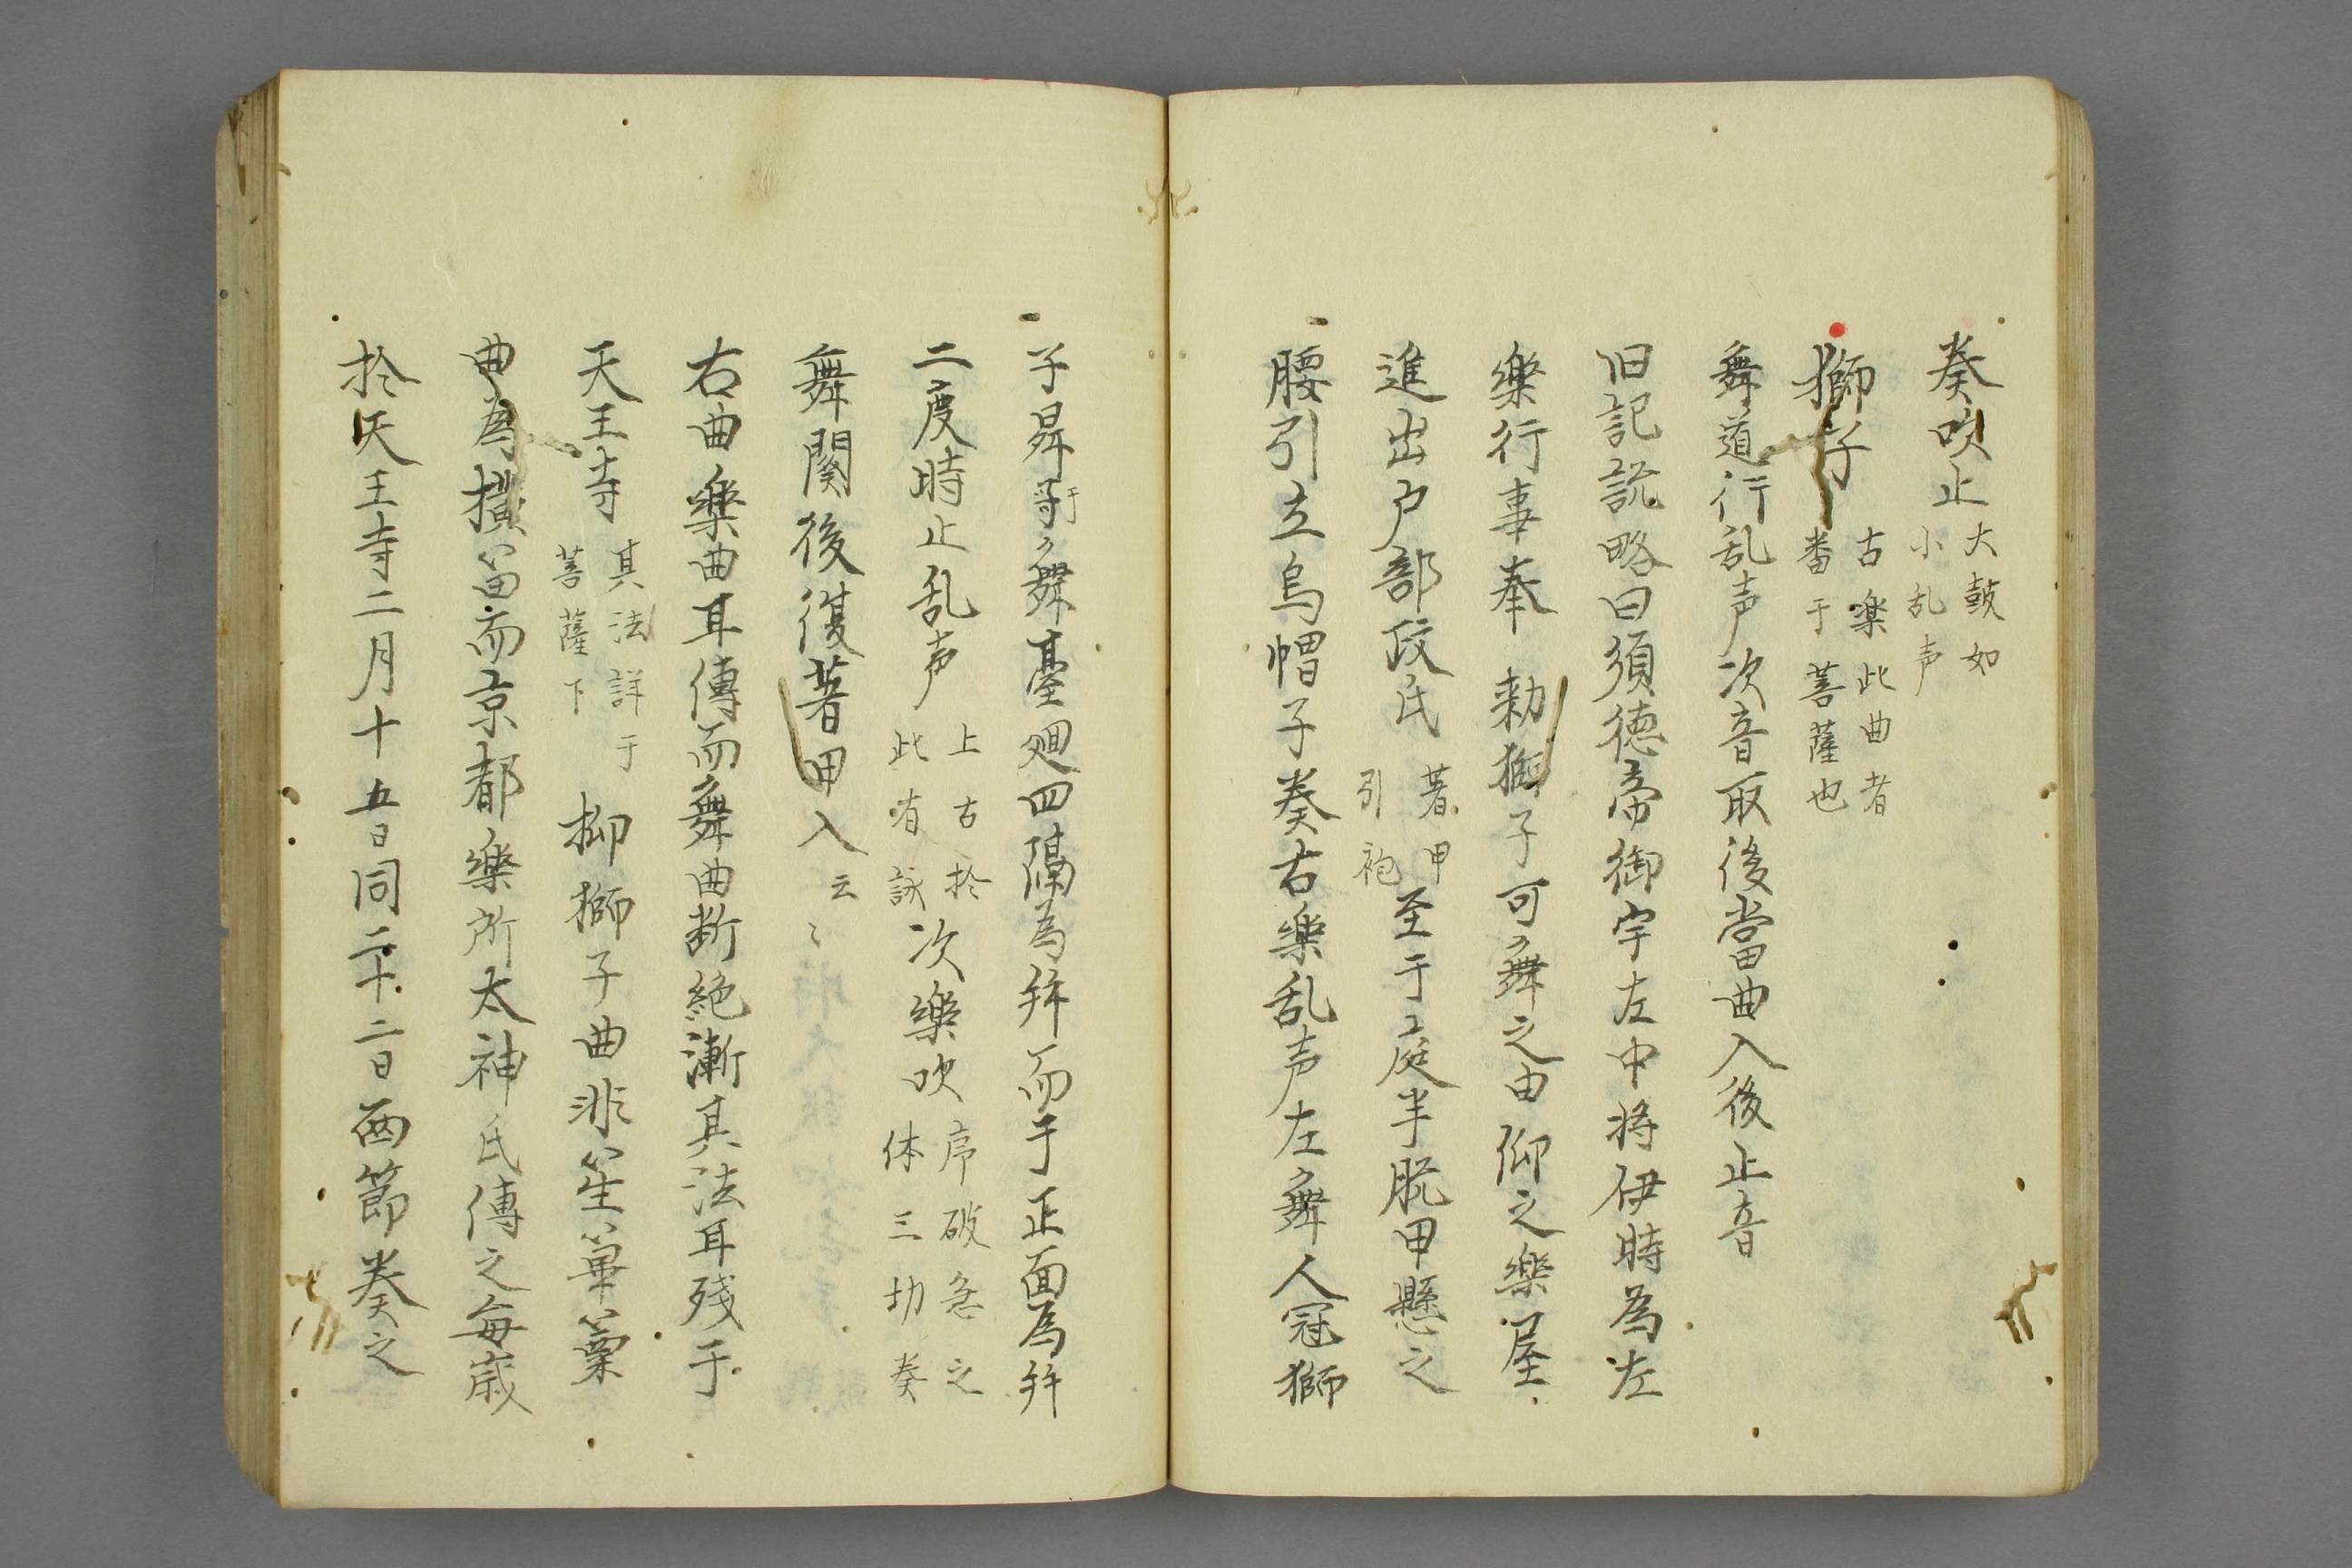 奏吹止 大鼓如 小乱声
獅子 古楽此曲者 番于菩薩也
舞道行乱声次音取後當曲入後止音
旧記説略曰須徳帝御宇左中将伊時為左
樂行事奉 勅獅子可舞之由仰之樂屋
進出戸部政氏 著甲 引袍 至于庭半脱甲懸之
腰引立烏帽子奏右樂乱声左舞人冠獅
子昇于舞臺廻四隅為拜而于正面為拜
二度時止乱声 上古於 此有詠 次樂吹 序破急之 体三切奏
舞闋後復著甲入云〻
右曲樂曲耳傳而舞曲断絶漸其法耳残于
天王寺 其法詳于 菩薩下 抑獅子曲非笙篳篥
曲為横笛而京都樂所太神氏傳之毎歳
於天王寺二月十五日同二十二日両節奏之